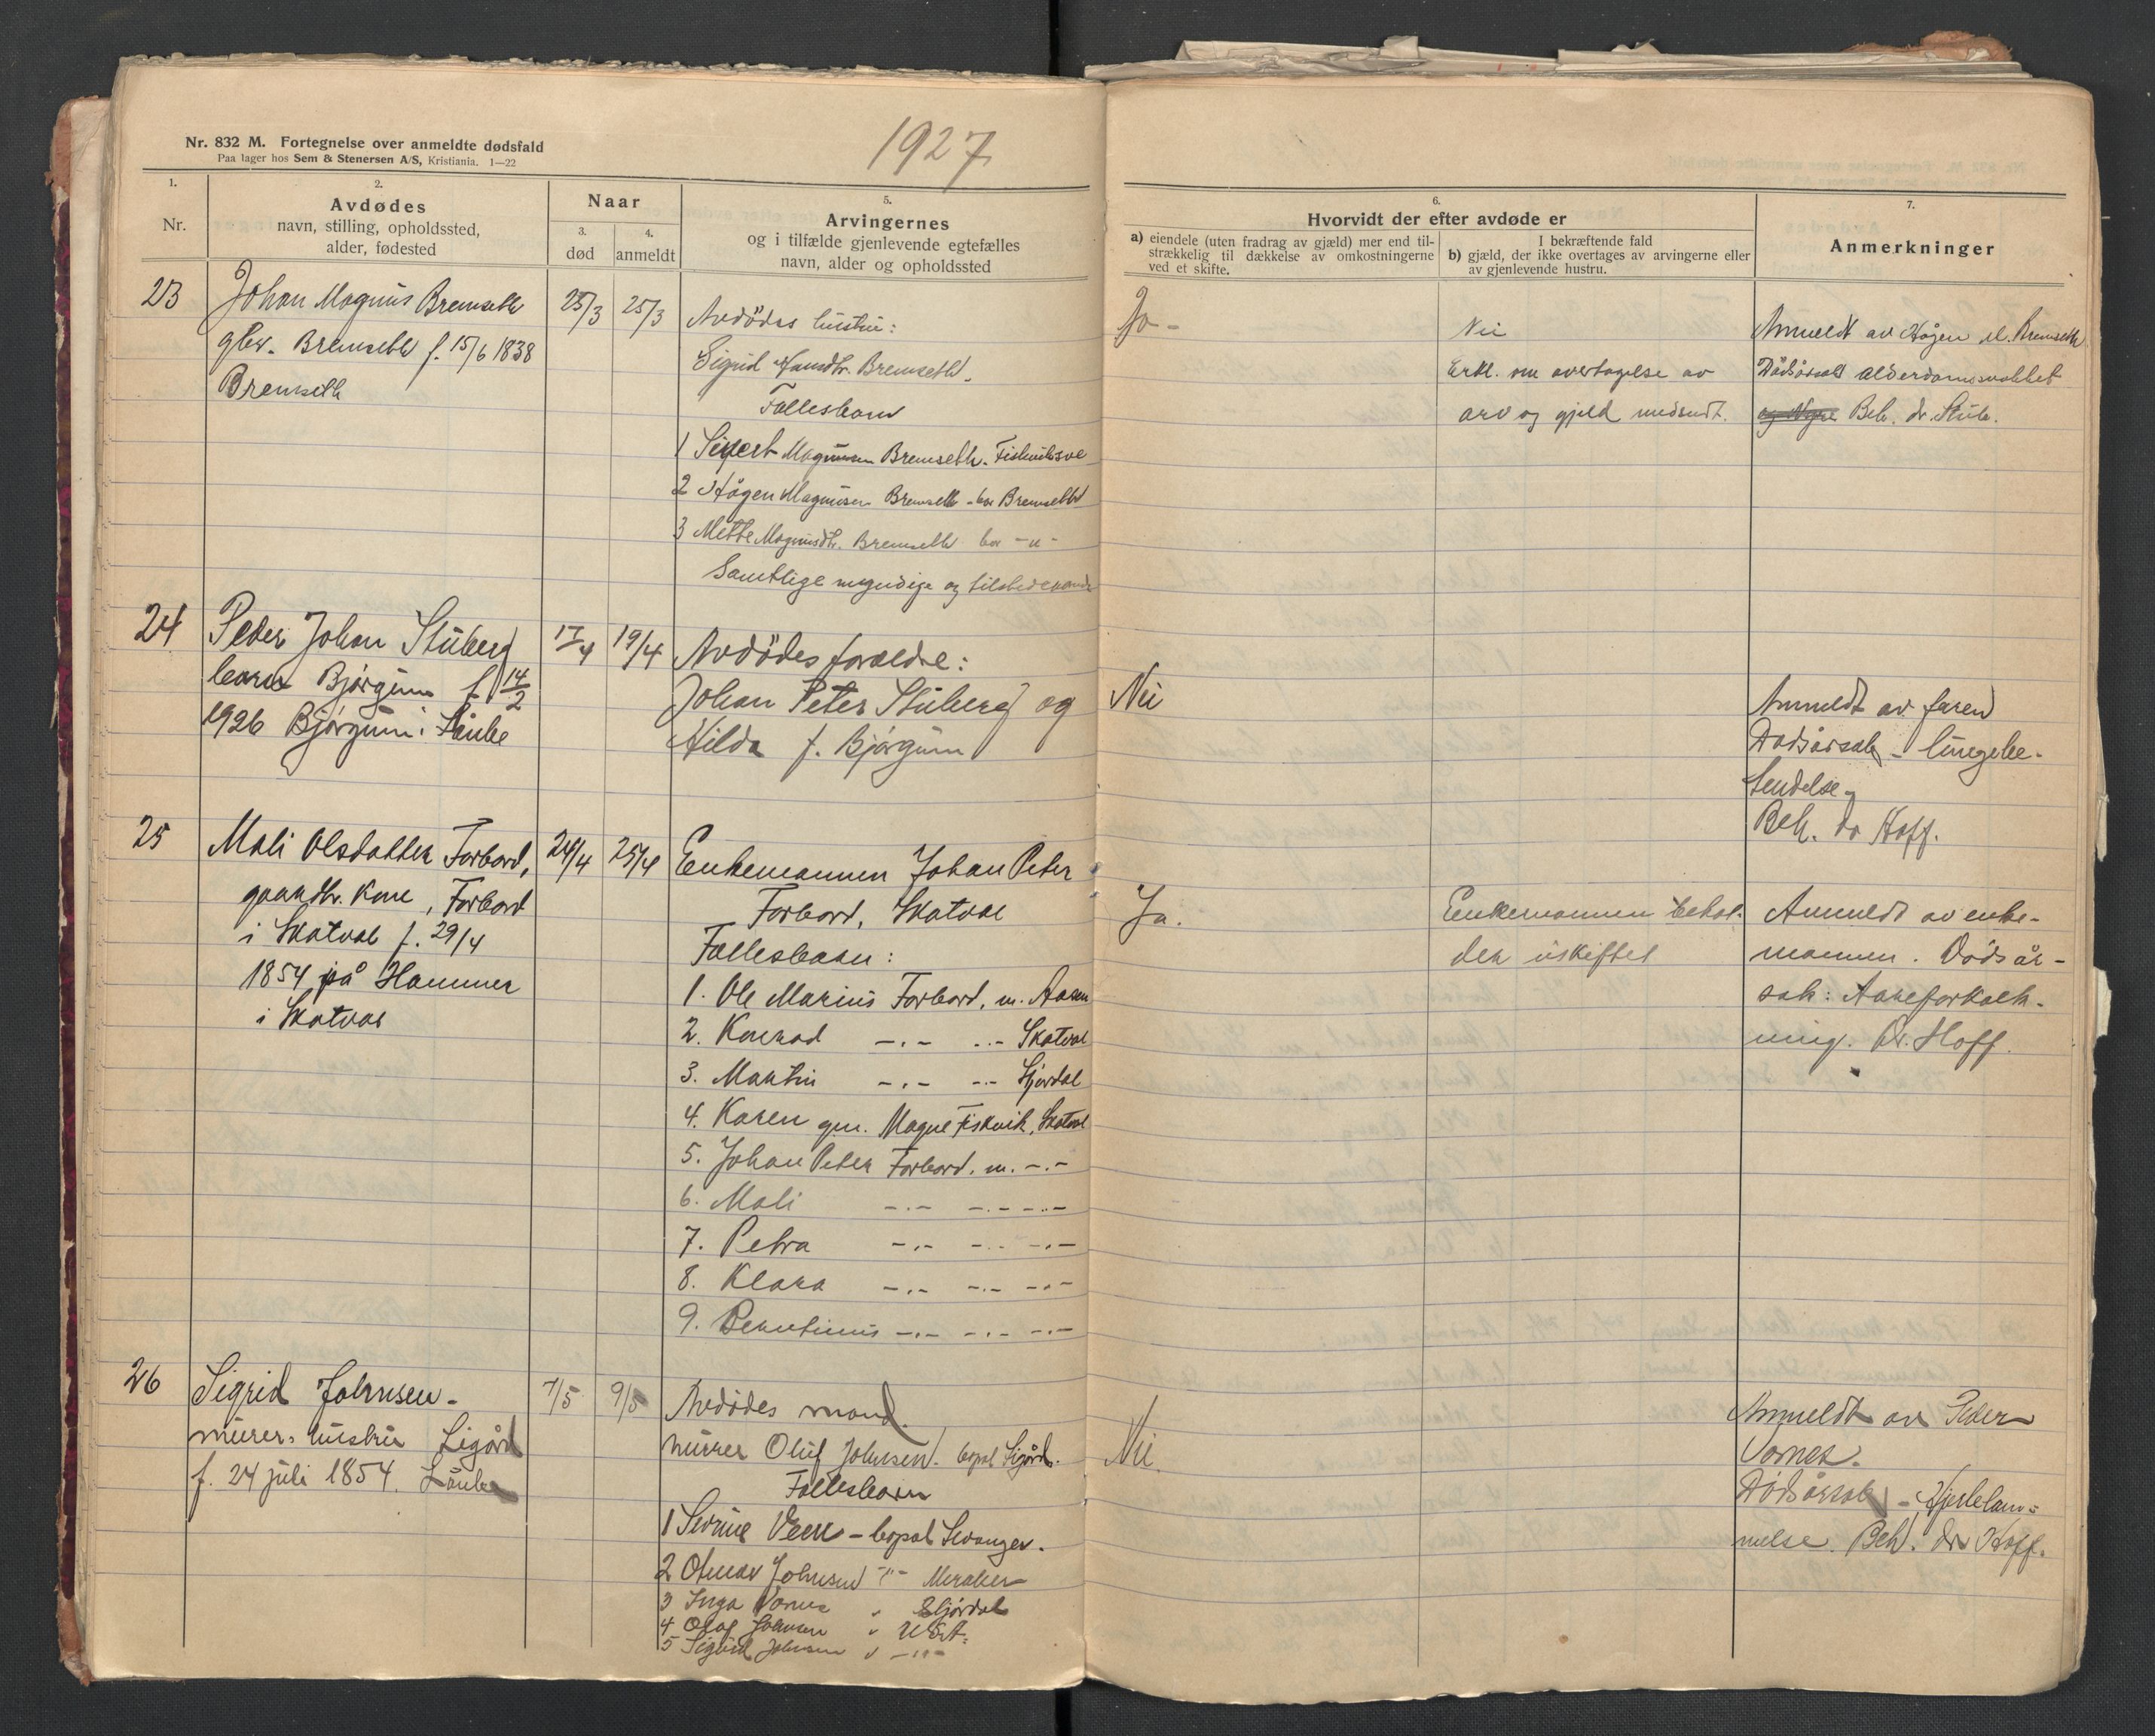 1927
Nr. 832 M. Fortegnelse over anmeldte dødsfald
Paa lager hos Sem & Stenersen A/S, Kristiania. 1—22
1.
Nr.
2.
Avdødes
navn, stilling, opholdssted,
alder, fødested
Naar
3.
død
4.
anmeldt
5.
Arvingernes
og i tilfælde gjenlevende egtefælles
navn, alder og opholdssted
6.
Hvorvidt der efter avdøde er
a) eiendele (uten fradrag av gjæld) mer end til-
strækkelig til dækkelse av omkostningerne
ved et skifte.
I bekræftende fald
b) gjæld, der ikke overtages av arvingerne eller
av gjenlevende hustru.
7.
Anmerkninger
23
Johan Magnus Bremseth
Bremseth f. 15/6 1838
Bremseth
25/3
25/3
Avdödes hustru:
Sigrid Hansdtr. Bremseth.
Fællesbarn
1 Sivert Magnusen Bremseth.
2 Hågen Magnusen Bremseth - bor Bremseth
3 Mette Magnusdtr. Bremseth bor -"-
Samtlige myndige og tilstedevær
Ja -
Nei
Erkl. om overtagelse av
arv og gjeld medsendt.
Anmeldt av Hågen M. Bremseth
Dödsårsak alderdomssvakhet
Beh. dr. Stub.
24
Peder Johan Stuberg
barn Bjørgum f. 14/2
1926 Bjørgum i Lånke
17/4
19/4
Avdödes forældre:
Johan Peter Stuberg og
Hilda f. Bjørgum
Nei
Anmeldt av faren
Dødsårsak - lungebe-
tendelse -
Beh. dr Hoff.
25
Mali Olsdatter Forbord,
gaardbr. Kone, Forbord
i Skatval f. 29/4
1854 på Hammer
i Skatval
24/4
25/4
Enkemannen Johan Peter
Forbord, Skatval
Fællesbarn:
1. Ole Marius Forbord, m. Aasen
2. Konrad -.- -.- Skatval
3. Martin -.- -.- Stjørdal
4. Karen gm. Magne Fiskvik, Skatval
5. Johan Peter Forbord, m. -.-
6. Mali -.- -.- -.-
7. Petra -.- -.- -.-
8. Klara -.- -.- -.-
9. Berntinus -.- -.- -.-
Ja.
Enkemannen behol-
der uskiftet
Anmeldt av enke-
mannen. Dødsår-
sak: Aareforkalk-
ning. Dr. Hoff.
26
Sigrid Johnsen -
murer. hustru Ligård
f. 24 juli 1854. Lånke
7/5
9/5
Avdødes mand.
murer Oluf Johnsen. bopel Ligård.
Fællesbarn
1 Sevrine Veek - bopel Levanger.
2 Johnsen -"- Meraker
3 Inga Vornes " Stjørdal
4 Olaf Johnsen " U.S.A.
5 Sigurd Johnsen " -"-
Nei.
Anmeldt av Peder
Vornes.
Dödsårsak - Hjertelam-
melse. Beh. dr Hoff.